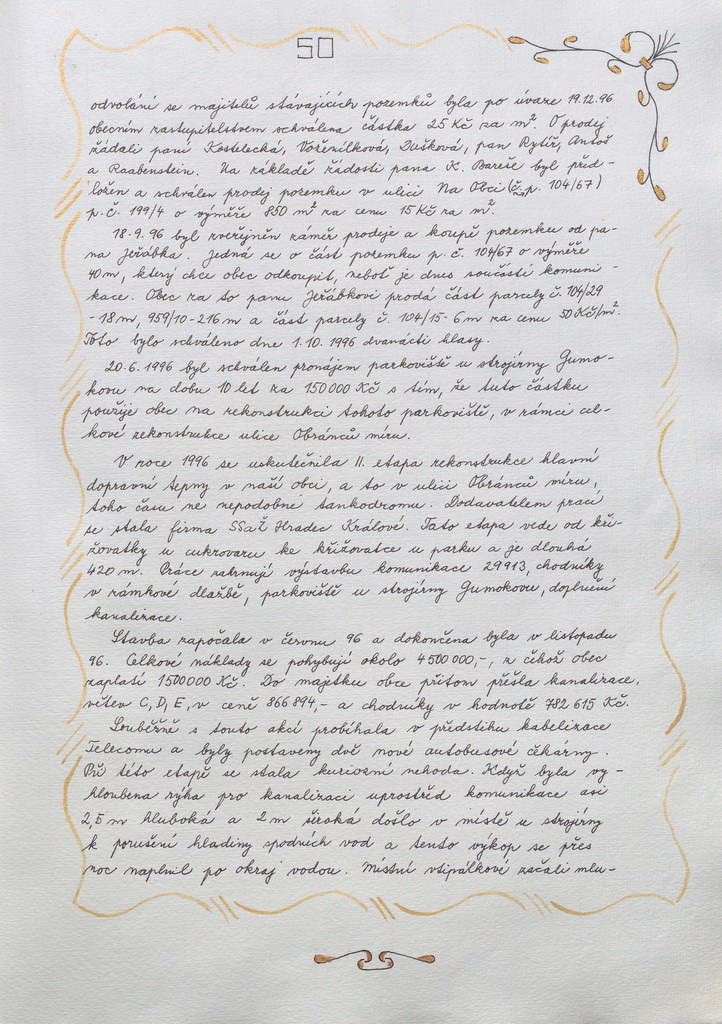 50
odvolání se majitelů stávajících pozemků byla po úvaze 19.12.96
obecním zastupitelstvem schválena částka 25 Kč za m². O prodej
žádali paní Kostelecká, Voženílková, Dušková, pan Rytíř, Antoš
a Raabenstein. Na základě žádosti pana K. Bareše byl před-
ložen a schválen prodej pozemku v ulici Na Obci (č.p. 104/67)
p.č. 199/4 o výměře 850 m² za cenu 15 Kč za m².
18.9.96 byl zveřejněn záměr prodeje a koupě pozemku od pa-
na Jeřábka. Jedná se o část pozemku p.č. 104/67 o výměře
40 m, který chce obec odkoupit, neboť je dnes součástí komuni-
kace. Obec za to panu Jeřábkovi prodá část parcely č. 104/29
- 18 m, 959/10 - 216 m a část parcely č. 104/15 - 6 m za cenu 50 Kč/m².
Toto bylo schváleno dne 1.10.1996 dvanácti hlasy.
20.6.1996 byl schválen pronájem parkoviště u strojírny Gumo-
kovu na dobu 10 let za 150 000 Kč s tím, že tuto částku
použije obec na rekonstrukci tohoto parkoviště, v rámci cel-
kové rekonstrukce ulice Obránců míru.
V roce 1996 se uskutečnila II. etapa rekonstrukce hlavní
dopravní tepny v naší obci, a to v ulici Obránců míru,
toho času ne nepodobné tankodromu. Dodavatelem prací
se stala firma SSaŽ Hradec Králové. Tato etapa vede od kři-
žovatky u cukrovaru ke křižovatce u parku a je dlouhá
420 m. Práce zahrnují výstavbu komunikace 29913, chodníky
v zámkové dlažbě, parkoviště u strojírny Gumokovu, doplnění
kanalizace.
Stavba započala v červnu 96 a dokončena byla v listopadu
96. Celkové náklady se pohybují okolo 4 500 000,-, z čehož obec
zaplatí 1500 000 Kč. Do majetku obce přitom přešla kanalizace,
větev C, D, E, v ceně 866 894,- a chodníky v hodnotě 782 615 Kč.
Souběžně s touto akcí probíhala v předstihu kabelizace
Telecomu a byly postaveny dvě nové autobusové čekárny.
Při této etapě se stala kuriozní nehoda. Když byla vy-
hloubena rýha pro kanalizaci uprostřed komunikace asi
2,5 m hluboká a 2 m široká došlo v místě u strojírny
k porušení hladiny spodních vod a tento výkop se přes
noc naplnil po okraj vodou. Místní vtipálkové začali mlu-